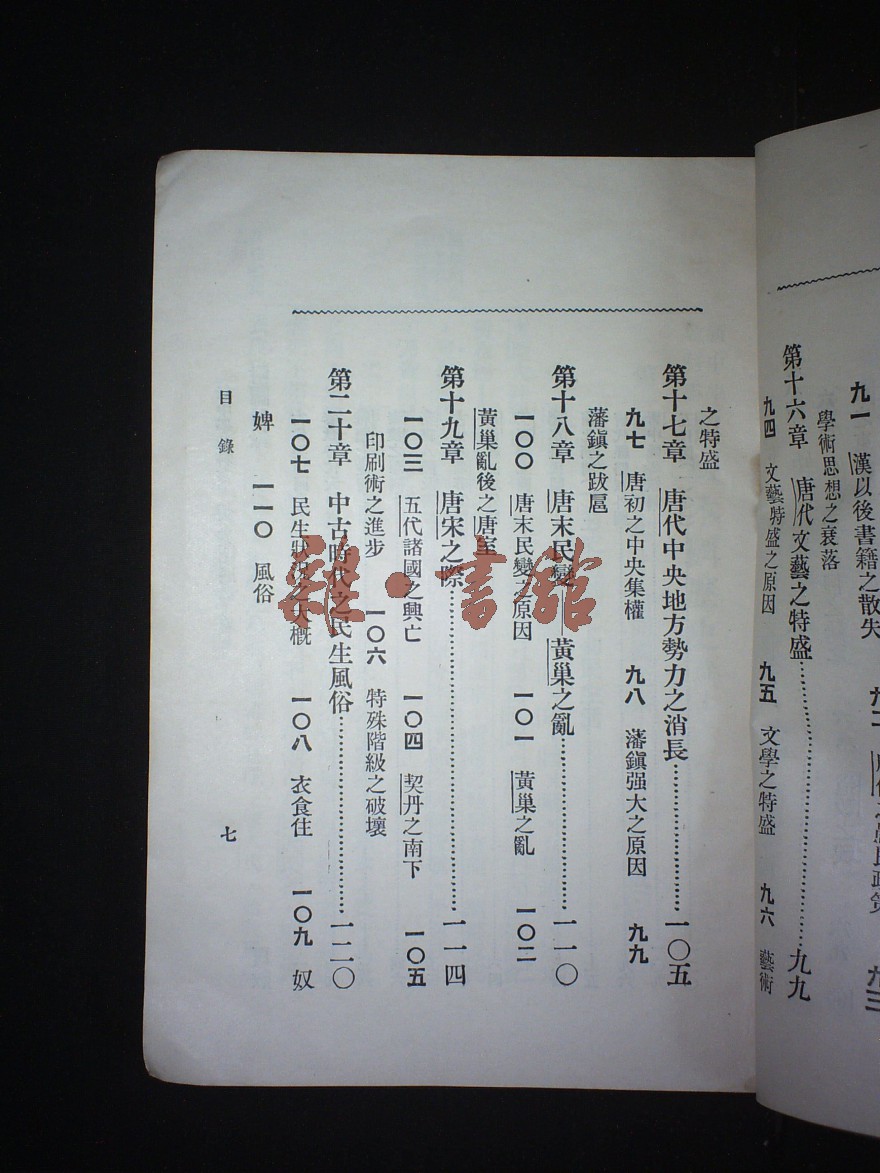 九一 漢以後書籍之散失 九二
學術思想之衰落
第十六章 唐代文藝之特盛……九九
九四 文藝特盛之原因 九五 文學之特盛 九六 藝術
之特盛
第十七章 唐代中央地方勢力之消長……一〇五
九七 唐初之中央集權 九八 藩鎮强大之原因 九九
藩鎮之跋扈
第十八章 唐末民變——黃巢之亂……一一〇
一〇〇 唐末民變之原因 一〇一 黃巢之亂 一〇二
黃巢亂後之唐室
第十九章 唐宋之際……一一四
一〇三 五代諸國之興亡 一〇四 契丹之南下 一〇五
印刷術之進步 一〇六 特殊階級之破壞
第二十章 中古時代之民生風俗……一二〇
一〇七 民生狀況之大概 一〇八 衣食住 一〇九 奴
婢 一一〇 風俗
目錄 七
雜·書館